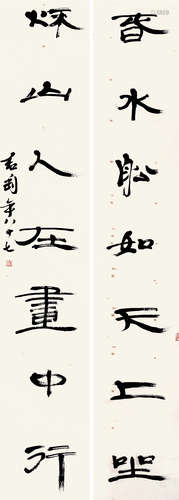 春水船如天上坐
秋山人在畫中行
君匋年八十七